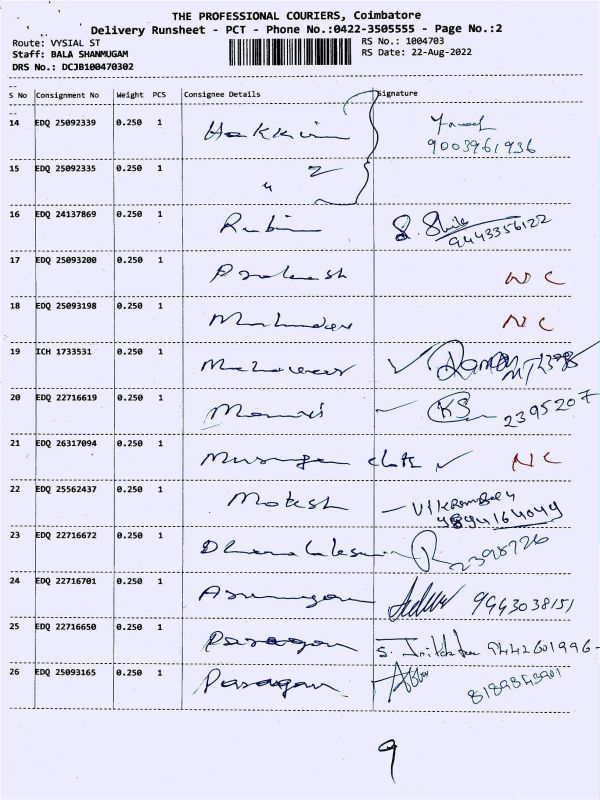 THE PROFESSIONAL COURIERS, Coimbatore
Delivery Runsheet - PCT - Phone No.:0422-3505555 - Page No.:2
Route: VYSIAL ST RS No.: 1004703
Staff: BALA SHANMUGAM RS Date: 22-Aug-2022
DRS No.: DCJB100470302
S No Consignment No Weight PCS Consignee Details Signature
14 EDQ 25092339 0.250 1
9003961936
15 EDQ 25092335 0.250 1
16 EDQ 24137869 0.250 1 Rubin
9443356122
17 EDQ 25093200 0.250 1 Prakash NC
18 EDQ 25093198 0.250 1 NC
19 ICH 1733531 0.250 1
20 EDQ 22716619 0.250 1 KS 2395207
21 EDQ 26317094 0.250 1 Murugan cloth NC
22 EDQ 25562437 0.250 1 Mokesh
23 EDQ 22716672 0.250 1
24 EDQ 22716701 0.250 1 Arumugam 9443038151
25 EDQ 22716650 0.250 1 Paragon 9442601996
26 EDQ 25093165 0.250 1 Paragon
9